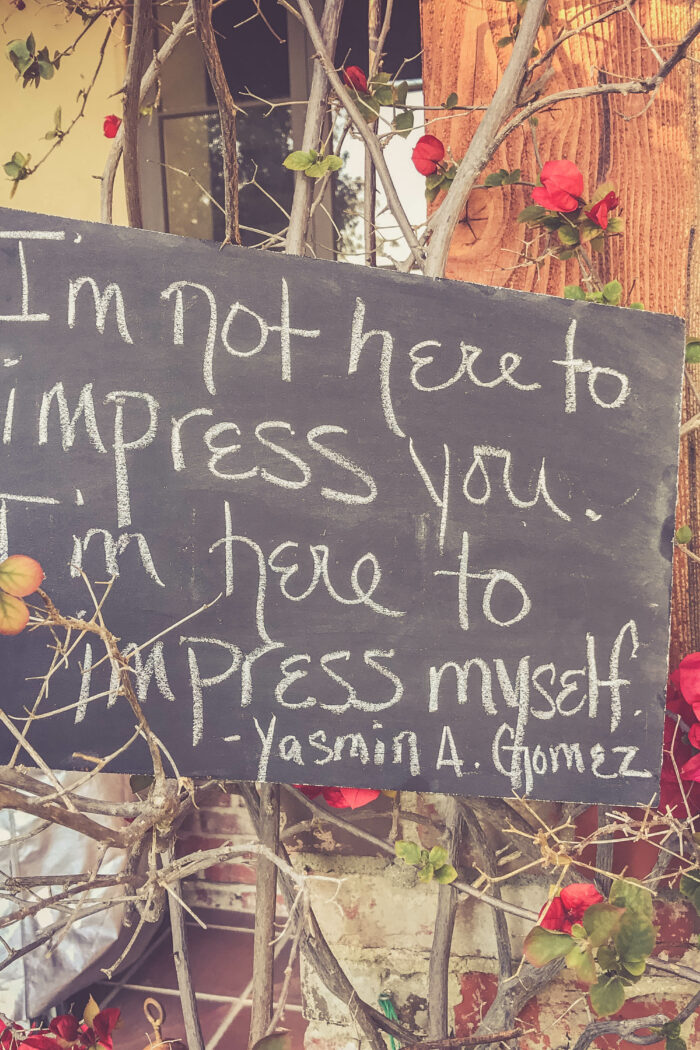 I'm not here to
impress you.
I'm here to
impress myself.
- Yasmin A. Gomez